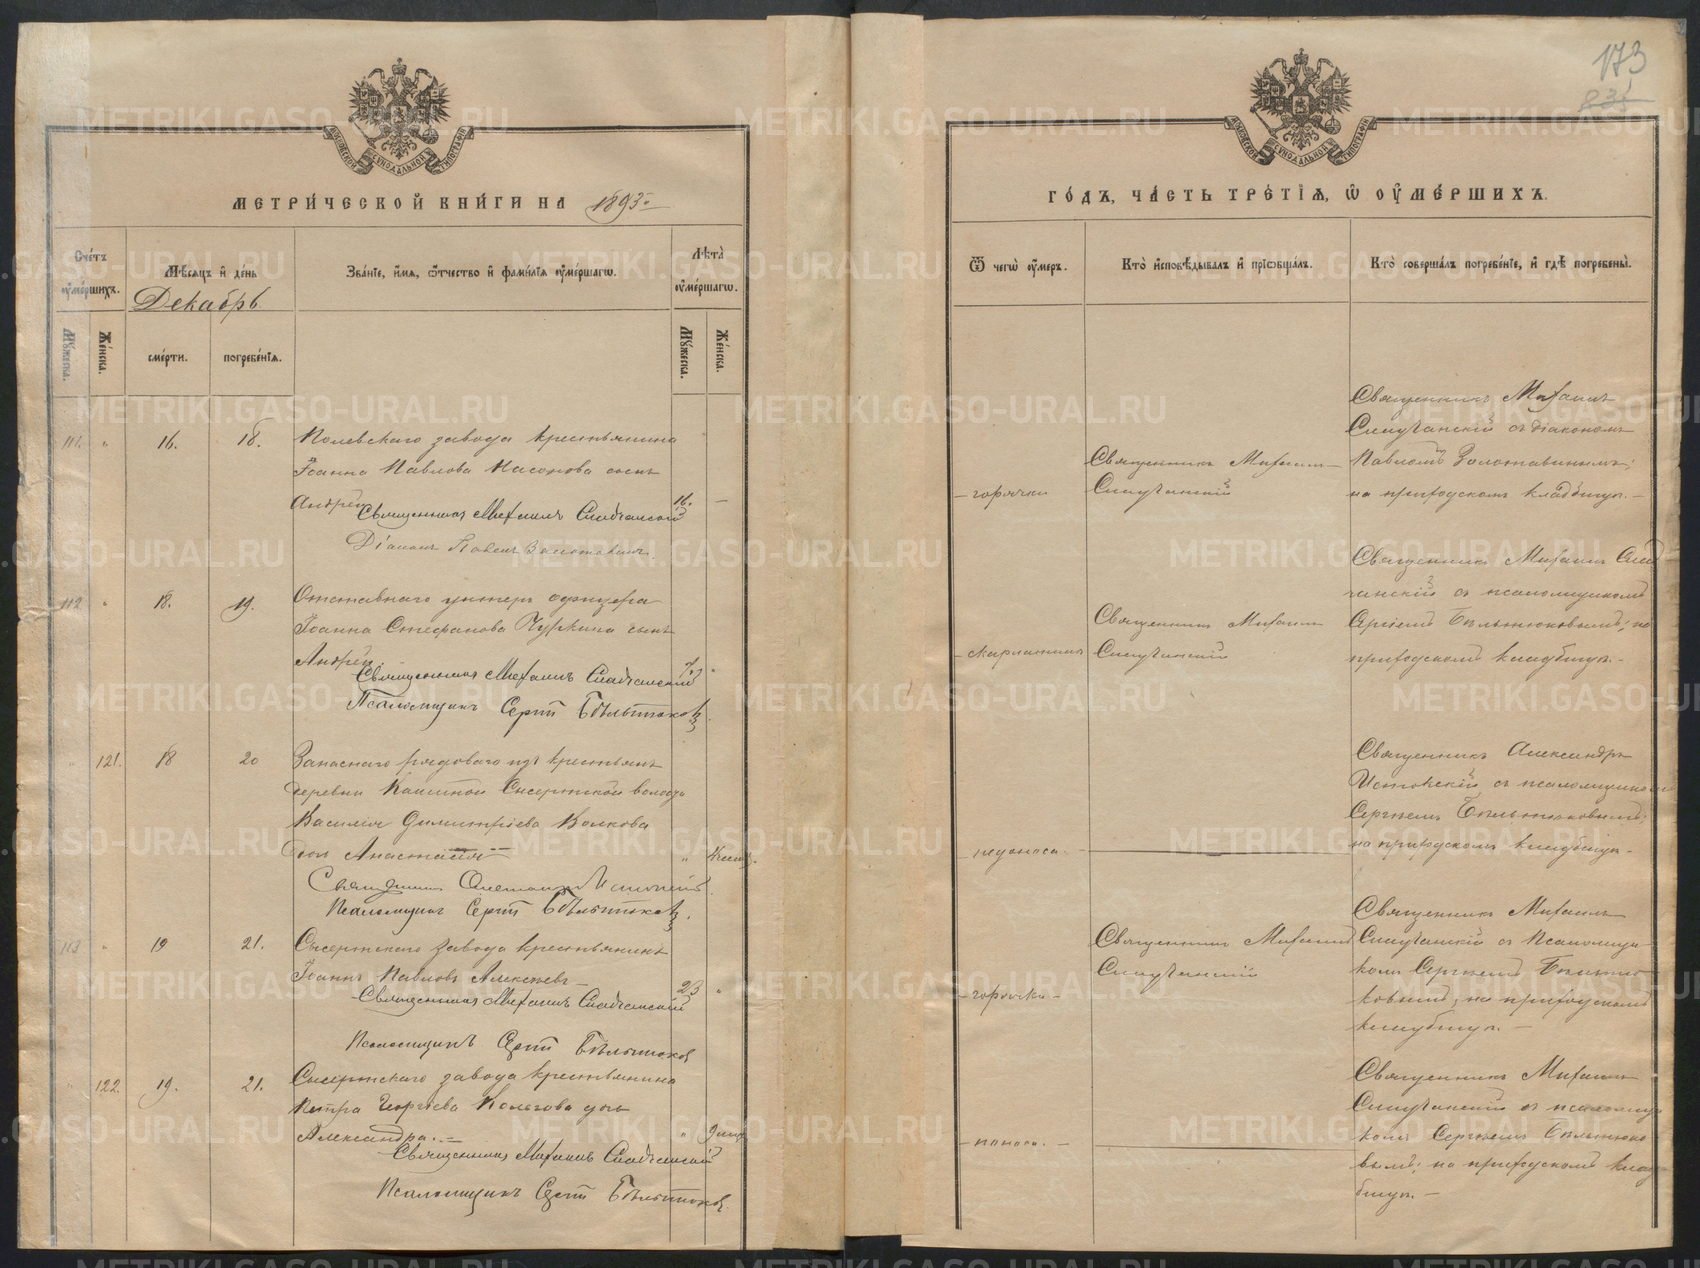 МЕТРИ́ЧЕСКОЙ КНИ́ГИ НА 1893
Сче́тъ ᲂу҆ме́ршихъ.
Мѣ́сяцъ и҆ де́нь
Декабрь
Зва́нїе, и҆́мя, ѻ҆́тчество и҆ фами́лїя ᲂу҆ме́ршагѡ.
Лѣ́та ᲂу҆ме́ршагѡ.
Мꙋ́жеска.
Же́нска.
сме́рти.
погребе́нїя.
Мꙋ́жеска.
Же́нска.
111. " 16. 18.
Полевскаго завода крестьянина
Іоанна Павлова Насонова сынъ
Андрей 16. —
Священникъ Михаилъ
Діаконъ Павелъ Золотавинъ.
112 " 18. 19.
Отставнаго унтеръ офицера
Іоанна Стефанова Чуркина сынъ
Андрей
Священникъ Михаилъ
Псаломщикъ Сергій Бѣльтюковъ
" 121. 18 20
Запаснаго рядоваго изъ крестьянъ
деревни Кашиной Сысертской волости
Василія Димитріева Волкова
дочь Анастасія "
Священникъ Александръ
Псаломщикъ Сергій Бѣльтюковъ.
113 " 19 21.
Сысертскаго завода крестьянинъ
Іоаннъ Павловъ Алексѣевъ 23 "
Священникъ Михаилъ
Псаломщикъ Сергій Бѣльтюковъ
" 122. 19. 21.
Сысертскаго завода крестьянина
Петра Георгіева дочь
Александра. "
Священникъ Михаилъ
Псаломщикъ Сергій Бѣльтюковъ.
173
ГО́ДЪ, ЧА́СТЬ ТРЕ́ТЇЯ, Ѡ҆ ОУ҆МЕ́РШИХЪ.
Ѿ чегѡ̀ ᲂу҆́меръ.
Кто̀ и҆сповѣ́дывалъ и҆ прїѡбща́лъ.
Кто̀ соверша́лъ погребе́нїе, и҆ гдѣ̀ погребены̀.
горячки
Священникъ Михаилъ
Священникъ Михаилъ
съ діакономъ
Павломъ Золотавинымъ;
на приходскомъ кладбищѣ. —
скарлатины
Священникъ Михаилъ
Священникъ Михаилъ
съ псаломщикомъ
Сергіемъ Бѣльтюковымъ; на
приходскомъ кладбищѣ. —
—
Священникъ Александръ
съ псаломщикомъ
Сергіемъ Бѣльтюковымъ;
на приходскомъ кладбищѣ. —
горячки —
Священникъ Михаилъ
Священникъ Михаилъ
съ Псаломщи-
комъ Сергіемъ Бѣльтю-
ковымъ; на приходскомъ
кладбищѣ. —
поноса. —
Священникъ Михаилъ
съ псаломщи-
комъ Сергіемъ Бѣльтюко-
вымъ; на приходскомъ клад-
бищѣ. —
METRIKI.GASO-URAL.RU